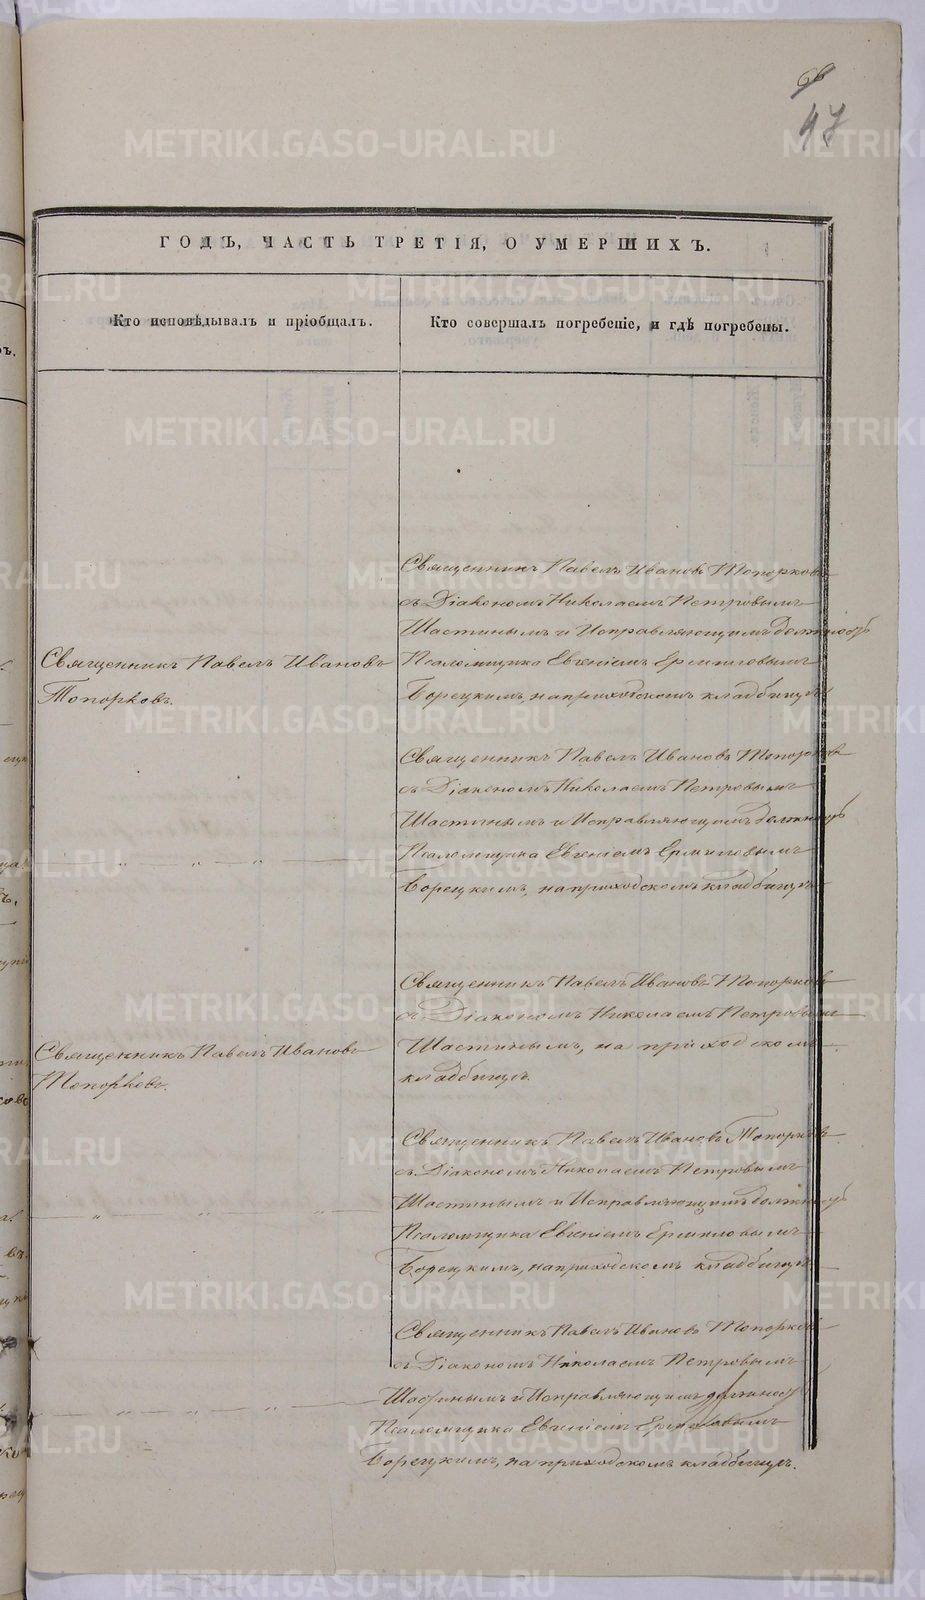 66
47
ГОДЪ, ЧАСТЬ ТРЕТІЯ, О УМЕРШИХЪ.
Кто исповѣдывалъ и пріобщалъ.
Кто совершалъ погребеніе, и гдѣ погребены.
Священникъ Павелъ Ивановъ
Топорковъ.
Священникъ Павелъ Ивановъ Топорковъ
съ Діакономъ Николаемъ Петровымъ
Шастинымъ и Исправляющимъ должность
Псаломщика Евгеніемъ Ермиловымъ
Борецкимъ, на приходскомъ кладбищѣ
Священникъ Павелъ Ивановъ Топорковъ
съ Діакономъ Николаемъ Петровымъ
Шастинымъ и Исправляющимъ должность
Псаломщика Евгеніемъ Ермиловымъ
Борецкимъ, на приходскомъ кладбищѣ
Священникъ Павелъ Ивановъ
Топорковъ.
Священникъ Павелъ Ивановъ Топорковъ
съ Діакономъ Николаемъ Петровымъ
Шастинымъ, на приходскомъ
кладбищѣ.
Священникъ Павелъ Ивановъ Топорковъ
съ Діакономъ Николаемъ Петровымъ
Шастинымъ и Исправляющимъ должность
Псаломщика Евгеніемъ Ермиловымъ
Борецкимъ, на приходскомъ кладбищѣ
Священникъ Павелъ Ивановъ Топорковъ
съ Діакономъ Николаемъ Петровымъ
Шастинымъ и Исправляющимъ должность
Псаломщика Евгеніемъ Ермиловымъ
Борецкимъ, на приходскомъ кладбищѣ.
METRIKI.GASO-URAL.RU